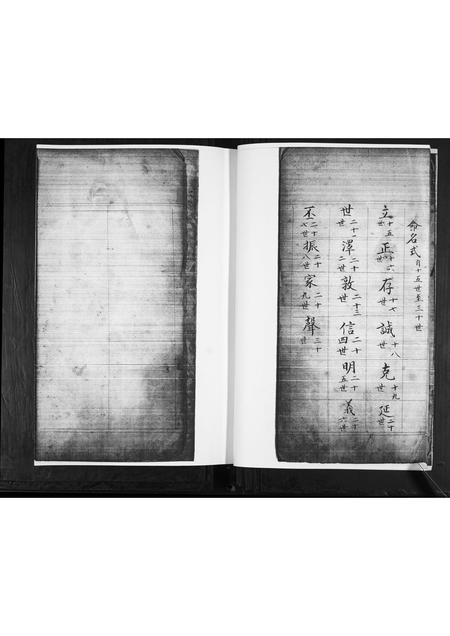 命名式 自十五世至三十世
立 十五世 正 十六世 存 十七世 誠 十八世 克 十九世 延 二十世
世 二十一世 澤 二十二世 敦 二十三世 信 二十四世 明 二十五世 義 二十六世
丕 二十七世 振 二十八世 家 二十九世 聲 三十世